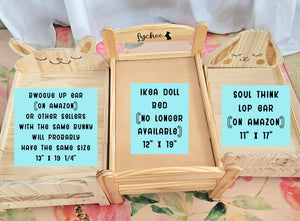 Lychee
BWOGUE UP EAR
(ON AMAZON)
OR OTHER SELLERS
WITH THE SAME BUNNY
WILL PROBABLY
HAVE THE SAME SIZE
13" X 19 1/4"
IKEA DOLL
BED
(NO LONGER
AVAILABLE)
12" X 19"
SOUL THINK
LOP EAR
(ON AMAZON)
11" X 17"